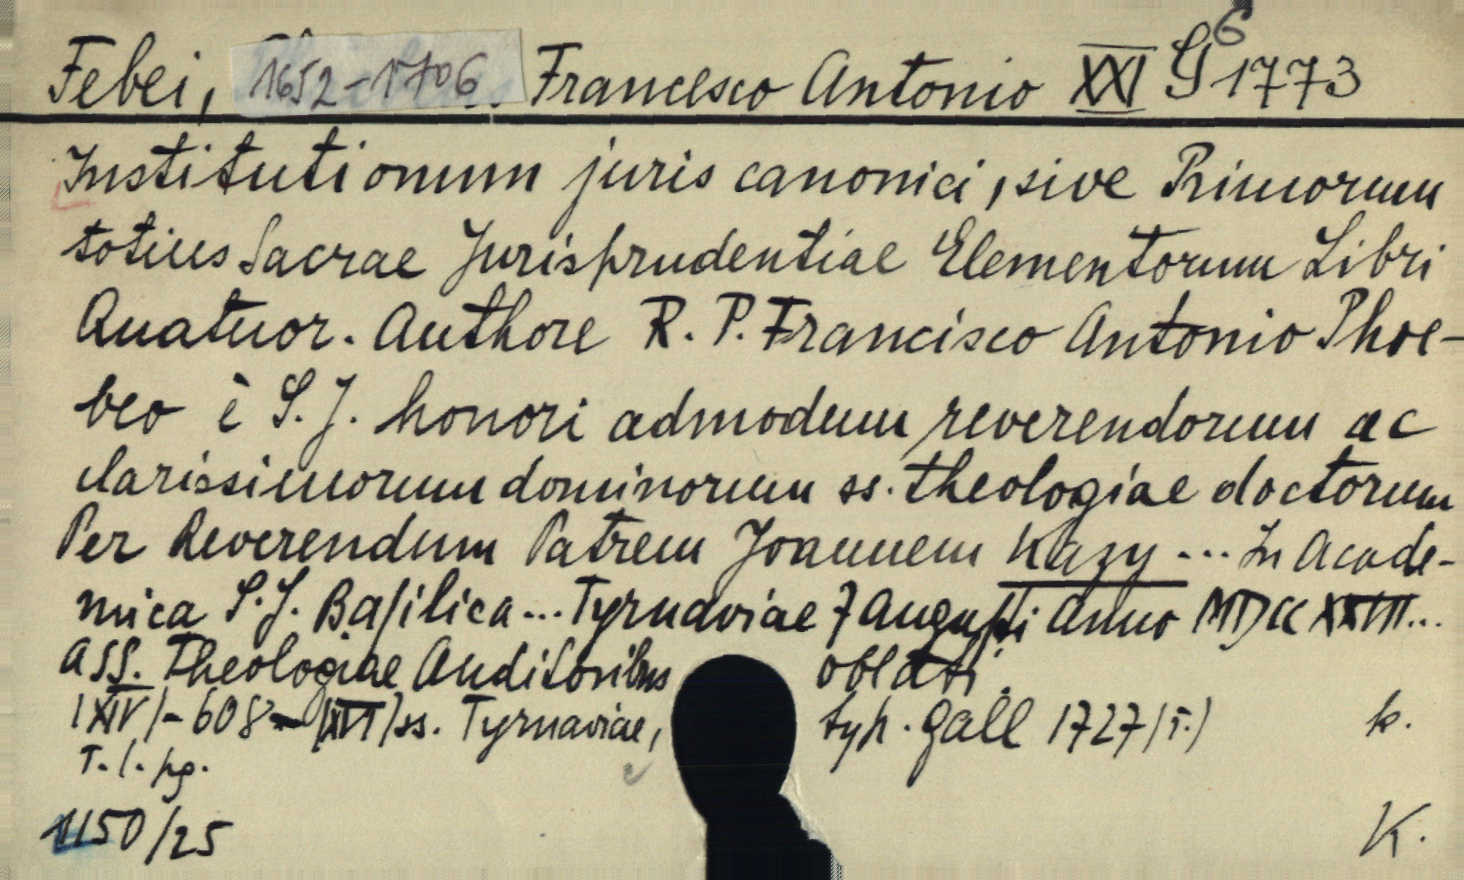 Febei, 1652-1706 Francesco Antonio XXI G 6 1773
Institutionum juris canonici, sive Primorum
totius Sacrae Jurisprudentiae Elementorum Libri
Quatuor. Authore R. P. Francisco Antonio Phoe-
beo è S. J. honori admodum reverendorum ac
clarissimorum dominorum ss. theologiae doctorum
Per Reverendum Patrem Joannem Kazy ... In Acade-
mica S. J. Basilica ... Tyrnaviae 7 Augusti Anno MDCCXXVII...
a SS. Theologiae Auditoribus oblati.
|XIV|-608-|XVI| ss. Tyrnaviae, typ. Gall 1727 (T.) k.
T. l. pg.
1150/25 K.